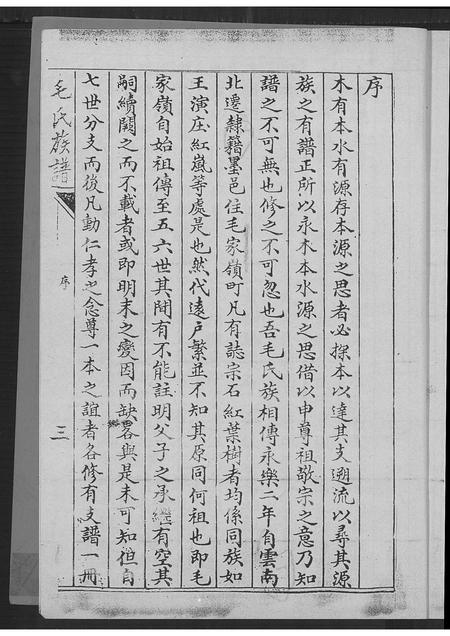 序
木有本水有源存本源之思者必探本以達其支遡流以尋其源
族之有譜正所以永木本水源之思借以申尊祖敬宗之意乃知
譜之不可無也修之不可忽也吾毛氏族相傳永樂二年自雲南
北遷隸籍墨邑住毛家嶺町凡有誌宗石紅葉樹者均係同族如
王演庄紅嵐等處是也然代遠戶繁並不知其原同何祖也即毛
家嶺自始祖傳至五六世其間有不能註明父子之承繼有空其
嗣續闕之而不載者或即明末之變因而缺畧與是未可知但自
七世分支而後凡動仁孝之念尊一本之誼者各修有支譜一冊
毛氏族譜
序
三